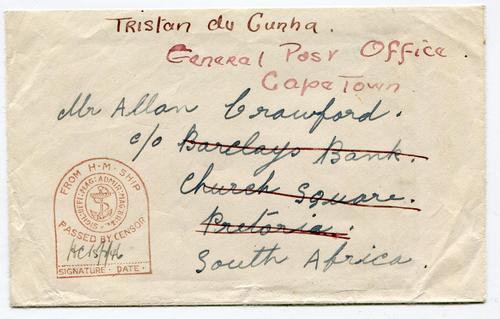 Tristan du Cunha.
General Post Office.
Cape Town
Mr Allan Crawford.
c/o Barclays Bank.
Church Square.
Pretoria.
South Africa.
FROM H·M·SHIP
PASSED BY CENSOR
SIGNATURE · DATE ·